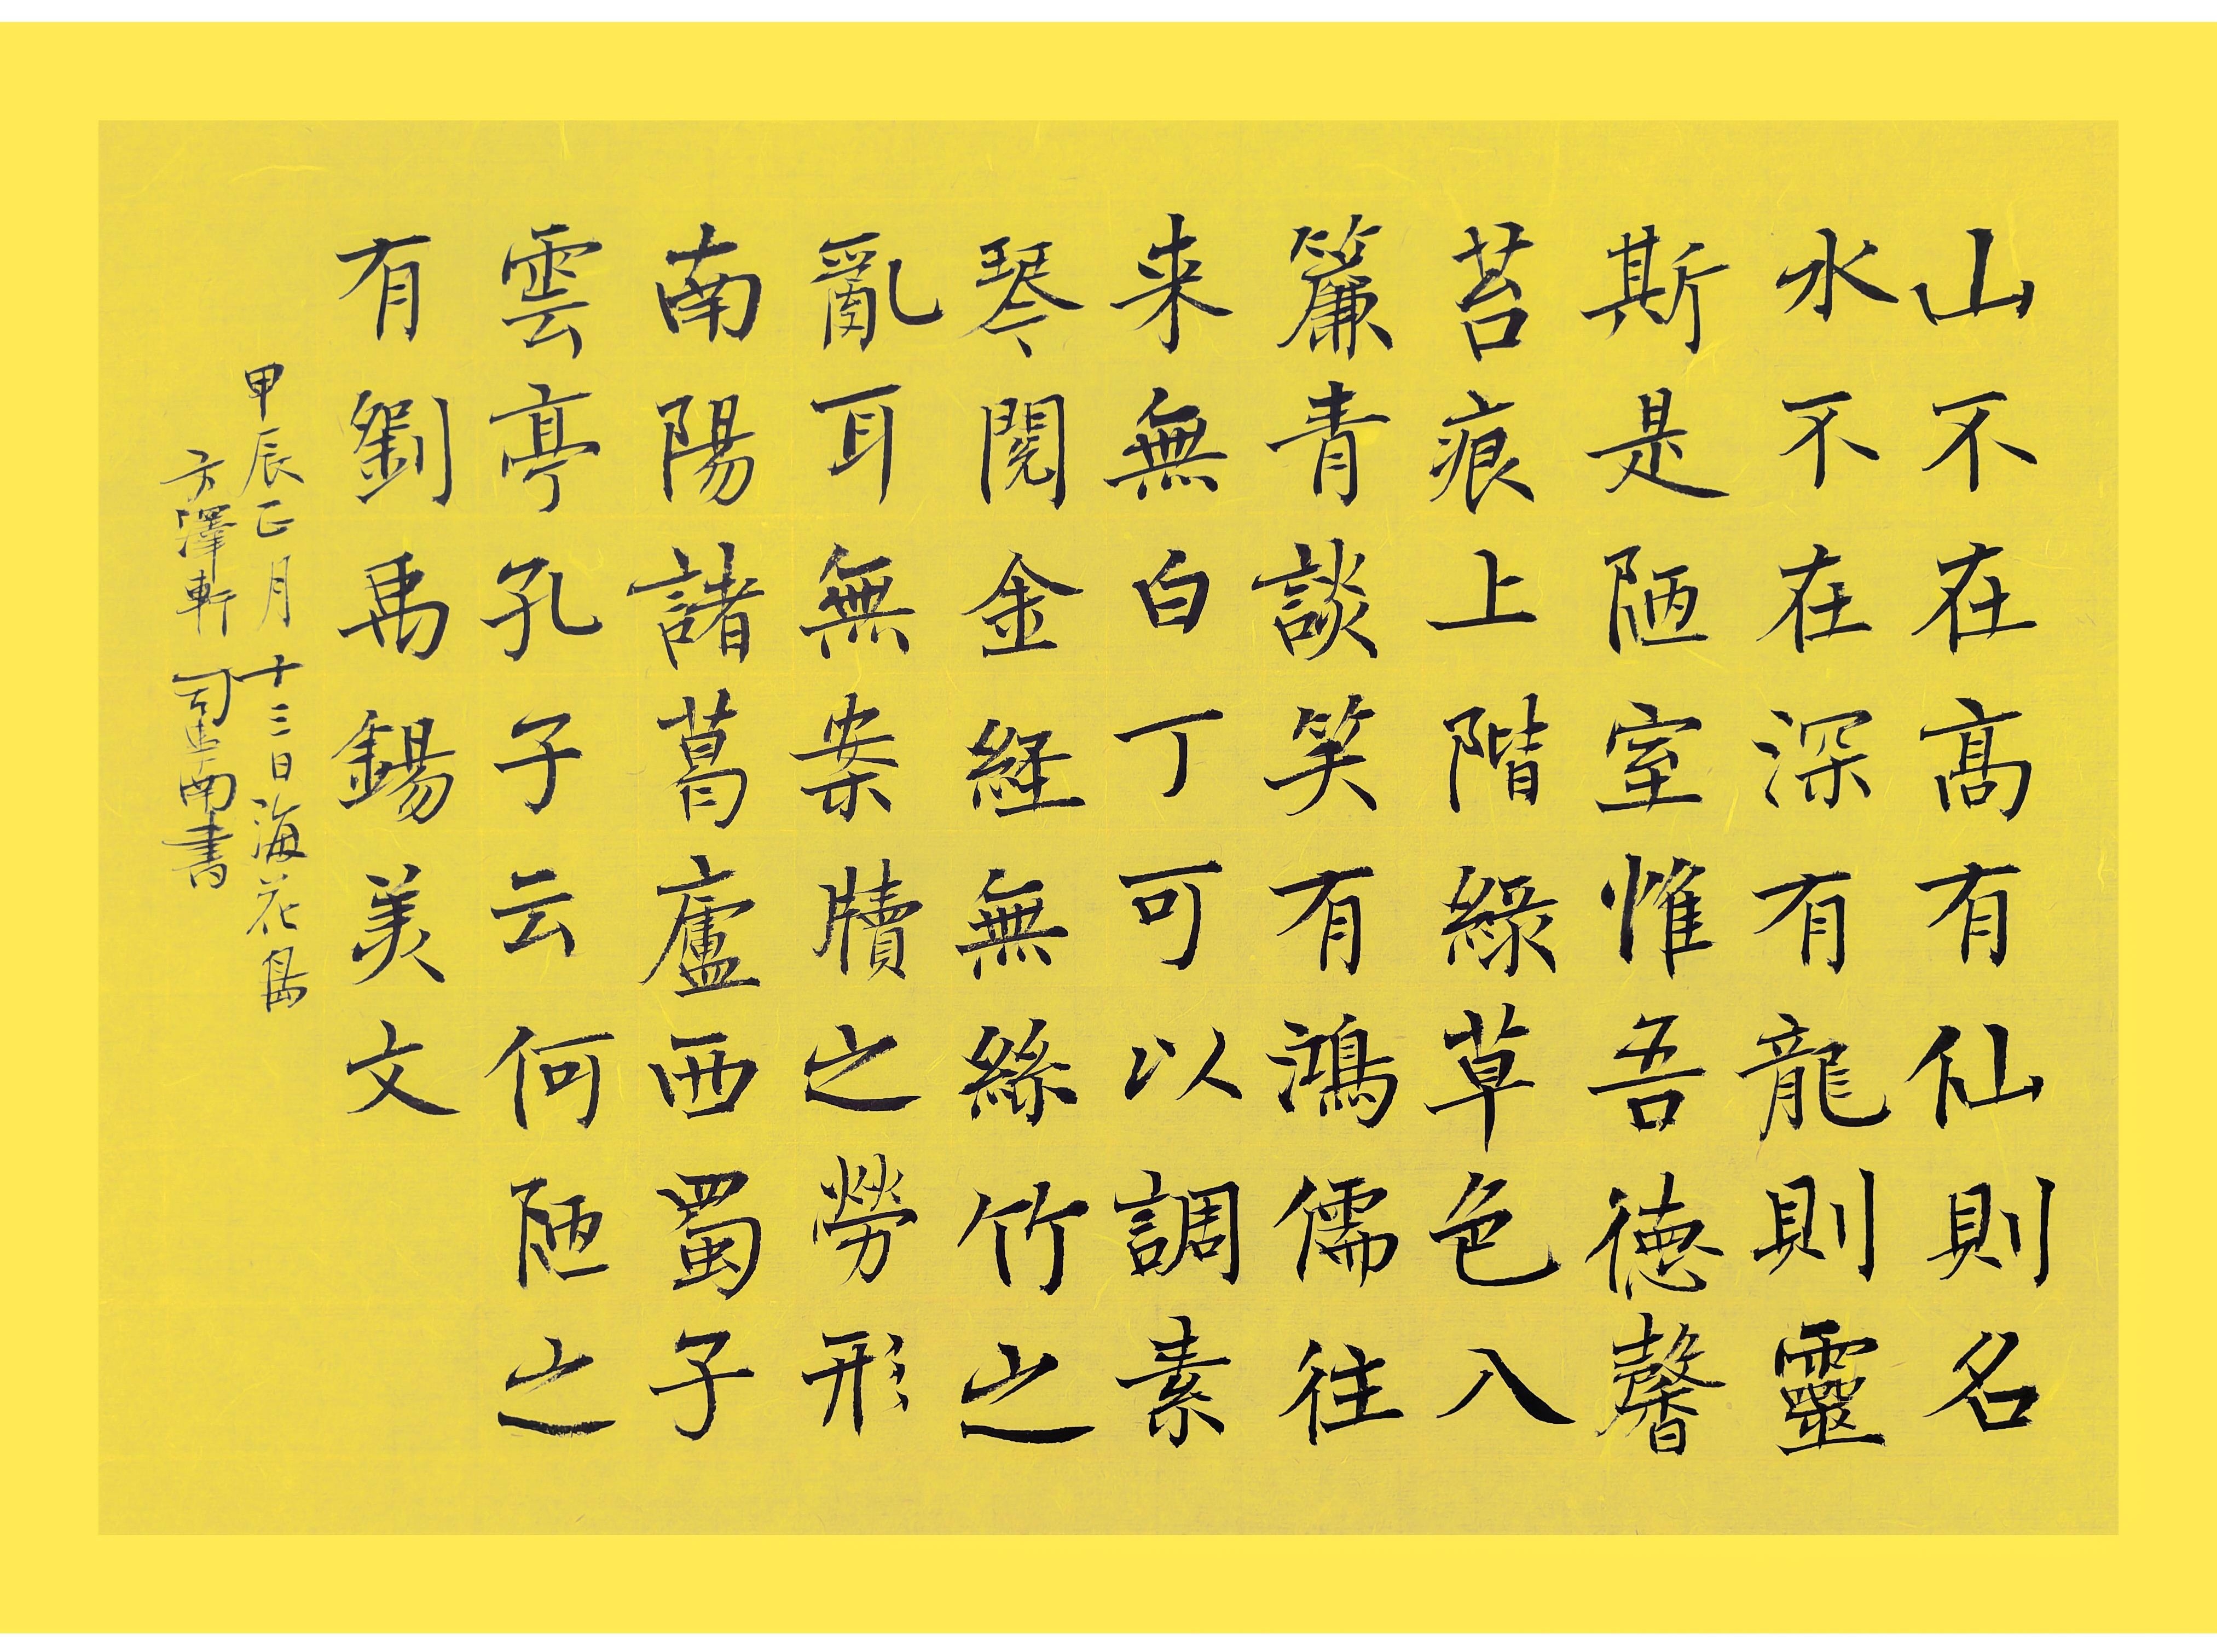 山不在高有仙則名
水不在深有龍則靈
斯是陋室惟吾德馨
苔痕上階綠草色入
簾青談笑有鴻儒往
来無白丁可以調素
琴閱金経無絲竹之
亂耳無案牘之勞形
南陽諸葛廬西蜀子
雲亭孔子云何陋之
有劉禹錫美文
甲辰正月十三日海花島
方澤軒 司南書